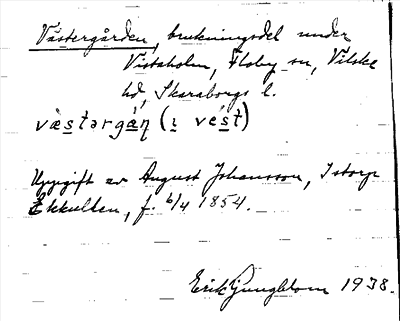 Västergården, brukningsdel under
Vistaholm, Floby sn, Vilske
hd, Skaraborgs l.
væ̀stərgá̱ɳ (ı̱ vés̱t)
Uppgift av August Johansson, Istorp
Ekkullen, f. 6/4 1854.
Erik Ljungblom 1938.